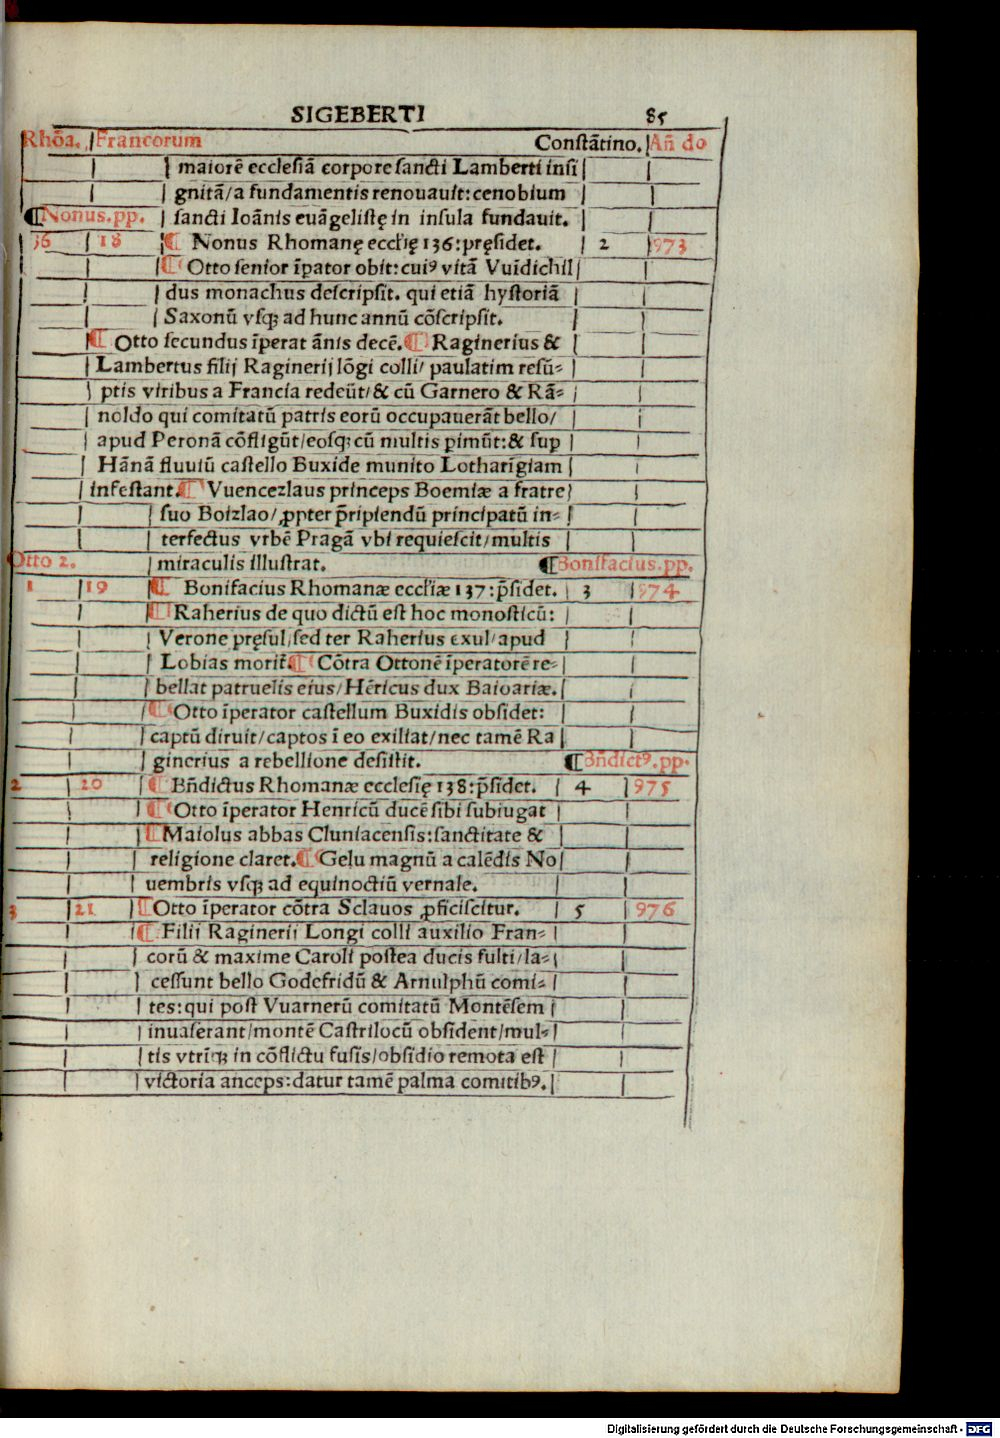 SIGEBERTI 85
Rhõa. Francorum Constãtino. Añ do
maiorẽ ecclesiã corpore sancti Lamberti insi
gnitã/a fundamentis renouauit:cenobium
¶Nonus.pp. sancti Ioãnis euãgelistę in insula fundauit.
36 18 ¶ Nonus Rhomanę eccl'ię 136:pręsidet. 2 973
¶ Otto senior ĩpator obit:cuiꝰ vitã Vuidichil
dus monachus descripsit. qui etiã hystoriã
Saxonũ vsqꝫ ad hunc annũ cõscripsit.
¶ Otto secundus ĩperat ãnis decẽ.¶ Raginerius &
Lambertus filij Raginerij lõgi colli/ paulatim resũ-
ptis viribus a Francia redeũt/& cũ Garnero & Rã-
noldo qui comitatũ patris eorũ occupauerãt bello/
apud Peronã cõfligũt/eosqꝫ cũ multis ꝑimũt:& suꝑ
Hãnã fluuiũ castello Buxide munito Lotharĩgiam
infestant.¶ Vuencezlaus princeps Boemiæ a fratre
suo Boizlao/ꝓpter p̃ripiendũ principatũ in-
terfectus vrbẽ Pragã vbi requiescit/multis
Otto 2. miraculis illustrat. ¶Bonifacius.pp.
1 19 ¶ Bonifacius Rhomanæ eccl'iæ 137:p̃sidet. 3 974
¶ Raherius de quo dictũ est hoc monosticũ:
Verone pręsul/sed ter Raherius exul/apud
Lobias morit̃.¶ Cõtra Ottonẽ ĩperatorẽ re-
bellat patruelis eius/Hẽricus dux Baioariæ.
¶ Otto ĩperator castellum Buxidis obsidet:
captũ diruit/captos ĩ eo exiliat/nec tamẽ Ra
ginerius a rebellione desistit. ¶Bñdictꝰ.pp.
2 20 ¶ Bñdictus Rhomanæ ecclesię 138:p̃sidet. 4 975
¶ Otto ĩperator Henricũ ducẽ sibi subiugat
¶ Maiolus abbas Cluniacensis:sanctitate &
religione claret.¶ Gelu magnũ a calẽdis No
uembris vsqꝫ ad equinoctiũ vernale.
3 21 ¶ Otto ĩperator cõtra Sclauos ꝓficiscitur. 5 976
¶ Filij Raginerij Longi colli auxilio Fran-
corũ & maxime Caroli postea ducis fulti/la-
cessunt bello Godefridũ & Arnulphũ comi-
tes:qui post Vuarnerũ comitatũ Montẽsem
inuaserant/montẽ Castrilocũ obsident/mul-
tis vtrĩqꝫ in cõflictu fusis/obsidio remota est
victoria anceps:datur tamẽ palma comitibꝰ.
Digitalisierung gefördert durch die Deutsche Forschungsgemeinschaft - DFG